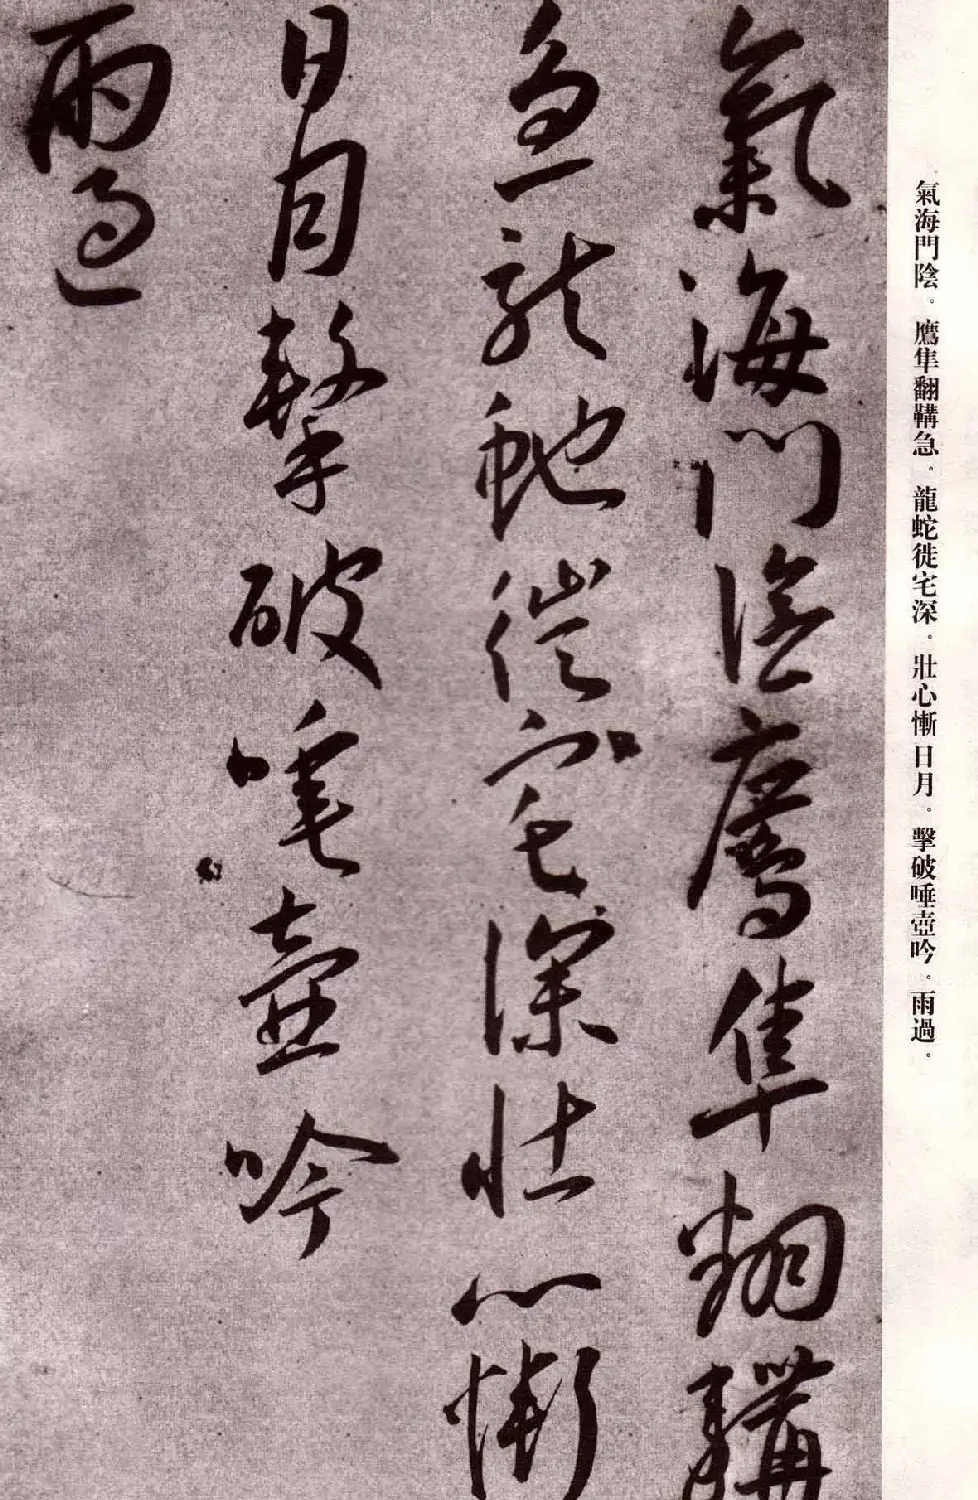 氣海門陰。鷹隼翻鞲急。龍蛇徙宅深。壯心慚日月。擊破唾壺吟。雨過。
氣海門陰鷹隼翻鞲
急龍蛇徙宅深壯心慚
日月擊破唾壺吟
雨過